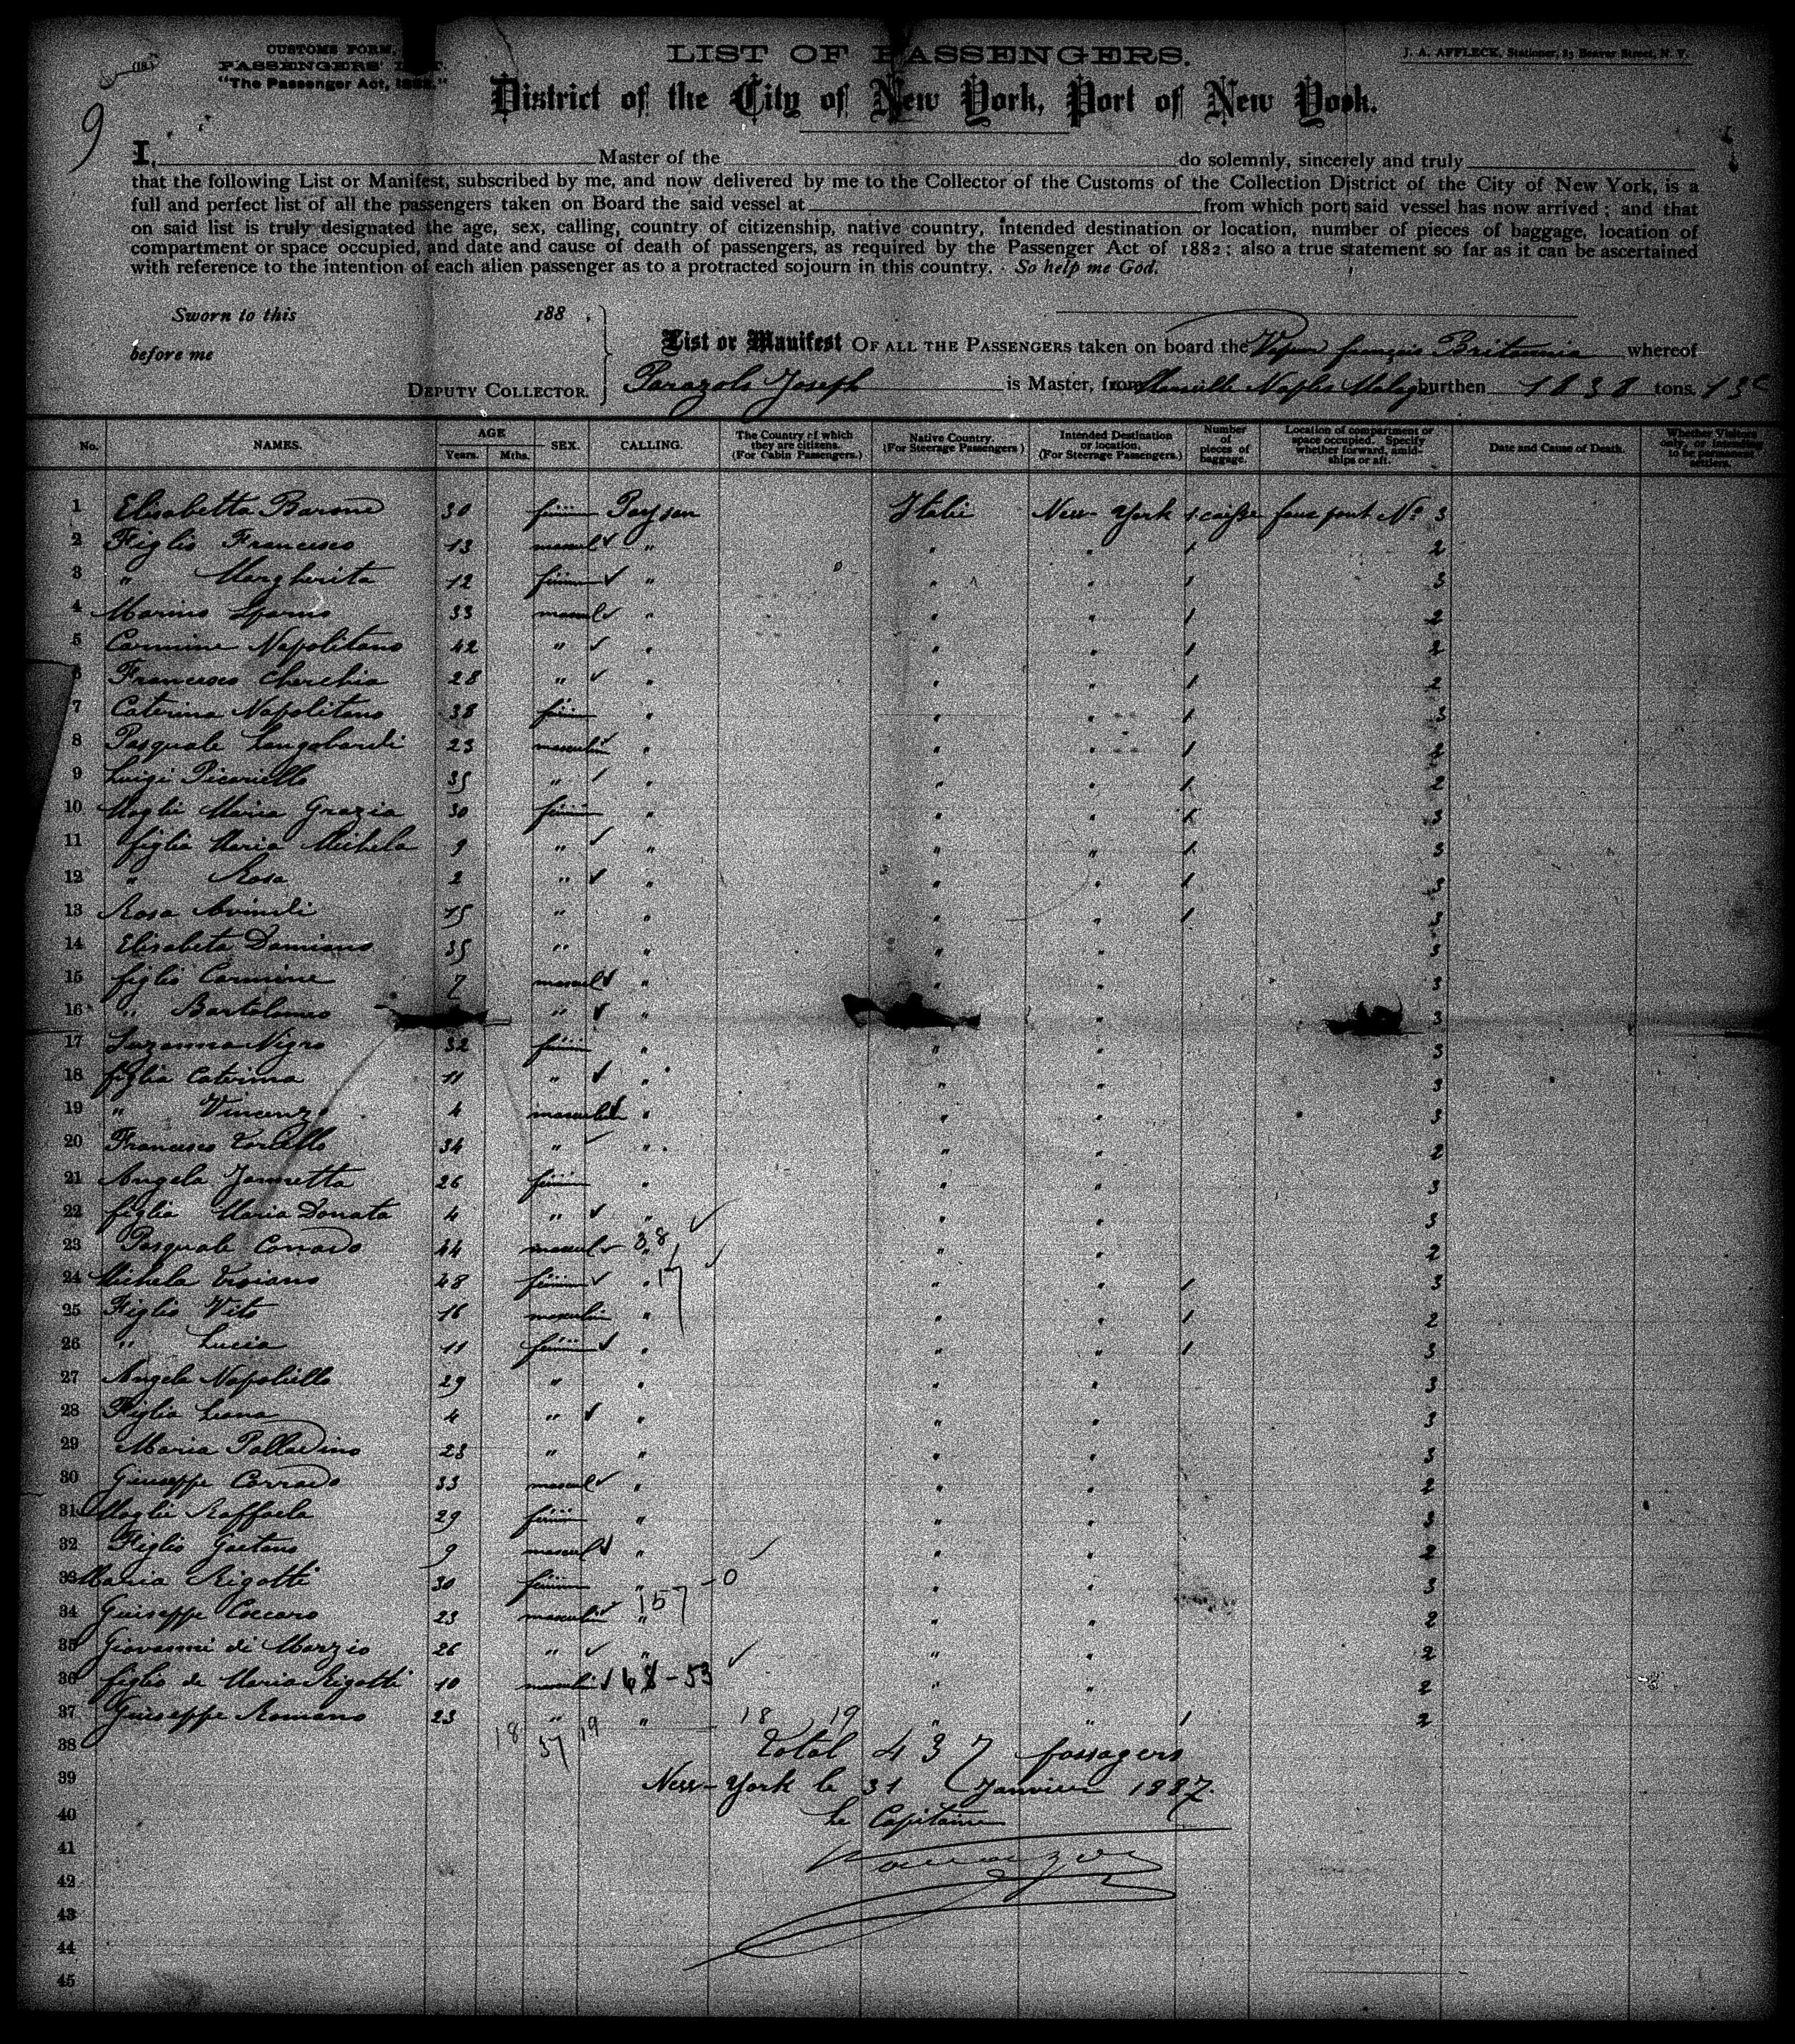 (18.)
CUSTOMS FORM.
PASSENGERS'
"The Passenger Act,
9
LIST OF PASSENGERS.
J. A. AFFLECK, Stationer, 83 Beaver Street, N. Y.
District of the City of New York, Port of New York.
I, Master of the do solemnly, sincerely and truly
that the following List or Manifest, subscribed by me, and now delivered by me to the Collector of the Customs of the Collection District of the City of New York, is a
full and perfect list of all the passengers taken on Board the said vessel at from which port said vessel has now arrived; and that
on said list is truly designated the age, sex, calling, country of citizenship, native country, intended destination or location, number of pieces of baggage, location of
compartment or space occupied, and date and cause of death of passengers, as required by the Passenger Act of 1882; also a true statement so far as it can be ascertained
with reference to the intention of each alien passenger as to a protracted sojourn in this country. So help me God.
Sworn to this 188 ,
before me
DEPUTY COLLECTOR.
List or Manifest OF ALL THE PASSENGERS taken on board the Vapeur français Britannia whereof
Parazols Joseph is Master, from Marseille Naples Malaga burthen 1838 tons.
No. NAMES. AGE Years. Mths. SEX. CALLING. The Country of which they are citizens. (For Cabin Passengers.) Native Country. (For Steerage Passengers) Intended Destination or location. (For Steerage Passengers.) Number of pieces of baggage. Location of compartment or space occupied. Specify whether forward, amidships or aft. Date and Cause of Death. Whether Visitors only, or intending to be permanent settlers.
1 Elisabetta Barone 30 fémin Paysan Italie New-York 1 caisse faux pont No 3
2 Figlio Francesco 13 mascul " " " 1 2
3 " Margherita 12 fémin " " " 1 3
4 Marino 33 mascul " " " 1 2
5 Carmine Napolitano 42 " " " " 1 2
6 Francesco Cherchia 28 " " " " 1 2
7 Caterina Napolitano 38 fémin " " " 1 3
8 Pasquale Langobardi 23 masculin " " " 1 2
9 Luigi Picariello 35 " " " " 1 2
10 Moglie Maria Grazia 30 fémin " " " 1 3
11 figlia Maria Michela 9 " " " " 1 3
12 " Rosa 2 " " " " 1 3
13 Rosa 15 " " " " 1 3
14 Elisabeta Damiano 35 " " " " 3
15 figlio Carmine 7 mascul " " " 3
16 " Bartolomeo " " " 3
17 Suzanna Nigro 32 fémin " " " 3
18 figlia Caterina 11 " " " " 3
19 " Vincenzo 4 masculin " " " 3
20 Francesco Torello 34 " " " " 2
21 Angela Jannetta 26 fémin " " " 3
22 figlia Maria Donata 4 " " " " 3
23 Pasquale Corrado 44 mascul " 38 " " 2
24 Michela Troiano 48 fémin " 17 " " 1 3
25 Figlio Vito 16 masculin " " " 1 2
26 " Lucia 11 fémin " " " 1 3
27 Angela Napoliello 29 " " " " 3
28 Figlia Leana 4 " " " " 3
29 Maria Palladino 23 " " " " 3
30 Giuseppe Corrado 33 mascul " " " 2
31 Moglie Raffaela 29 fémin " " " 3
32 Figlio Gaetano 9 mascul " " " 2
33 Maria Rigotti 30 fémin " 0 " " 3
34 Giuseppe Coccaro 23 masculin " 157 " " 2
35 Giovanni di Marzio 26 " " " " 2
36 figlio de Maria Rigotti 10 masculin 68-53 " " 2
37 Giuseppe Romano 23 " " 18 19 " " 1 2
38 18 37 19 Total 437 passagers
39 New-York le 31 Janvier 1887.
40 Le Capitaine
41
42
43
44
45